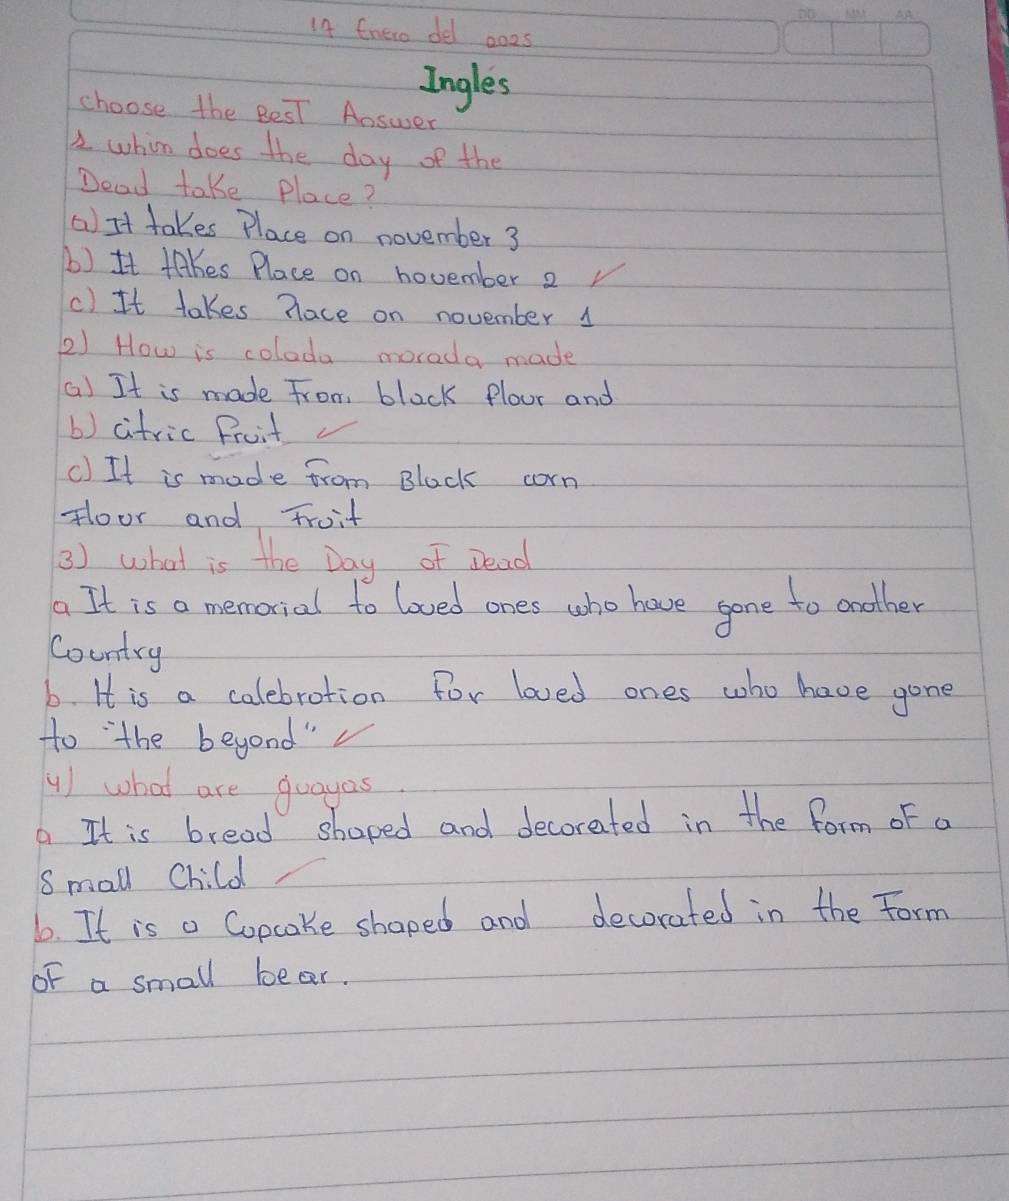 17 Enero del 2025
DD MM AA
Inglés
choose the BesT Answer
1 whim does the day of the
Dead take Place?
a) It takes Place on november 3
b) It takes Place on november 2 ✓
c) It takes Place on november 1
2) How is colada morada made
a) It is made From black flour and
b) citric fruit ✓
c) It is made from Black corn
Flour and Fruit
3) what is the Day of Dead
a It is a memorial to loved ones who have gone to another
Country
b. It is a calebration for loved ones who have gone
to "the beyond" ✓
4) what are guayas.
a It is bread shaped and decorated in the form of a
small Child ✓
b. It is a Cupcake shaped and decorated in the Form
of a small bear.